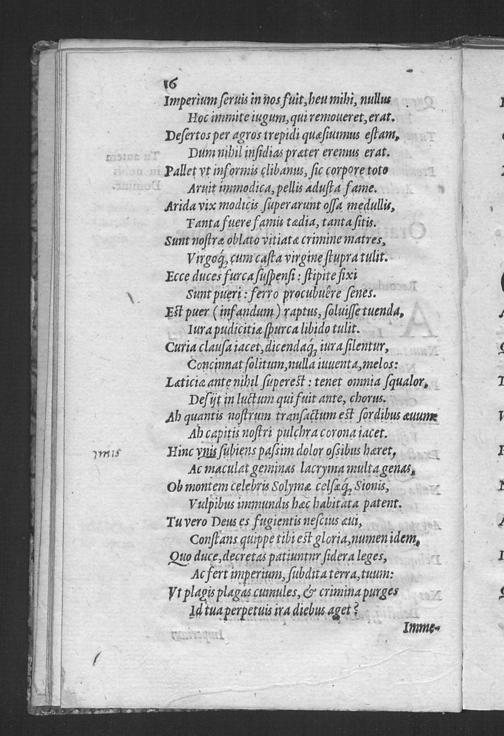 16
Imperium seruis in nos fuit, heu mihi, nullus
Hoc immite iugum, qui remoueret, erat.
Desertos per agros trepidi quæsiuimus estam,
Dum nihil insidias præter eremus erat.
Pallet vt informis clibanus, sic corpore toto
Aruit immodica, pellis adusta fame.
Arida vix modicis superarunt ossa medullis,
Tanta fuere famis tædia, tanta sitis.
Sunt nostræ oblato vitiatæ crimine matres,
Virgoq́, cum casta virgine stupra tulit.
Ecce duces furca suspensi: stipite fixi
Sunt pueri: ferro procubuêre senes.
Est puer (infandum) raptus, soluisse tuenda,
Iura pudicitiæ spurca libido tulit.
Curia clausa iacet, dicendaq́, iura silentur,
Concinnat solitum, nulla iuuenta, melos:
Laticiæ ante nihil superest: tenet omnia squalor,
Desijt in luctum qui fuit ante, chorus.
Ah quantis nostrum transactum est sordibus æuum
Ah capitis nostri pulchra corona iacet.
Hinc ynis subiens passim dolor ossibus hæret,
ymis
Ac maculat geminas lacryma multa genas,
Ob montem celebris Solymæ celsæq́, Sionis,
Vulpibus immundis hæc habitata patent.
Tu vero Deus es fugientis nescius æui,
Constans quippe tibi est gloria, numen idem,
Quo duce, decretas patiuntnr sidera leges,
Ac fert imperium, subdita terra, tuum:
Vt plagis plagas cumules, & crimina purges
Id tua perpetuis ira diebus aget?
Imme-